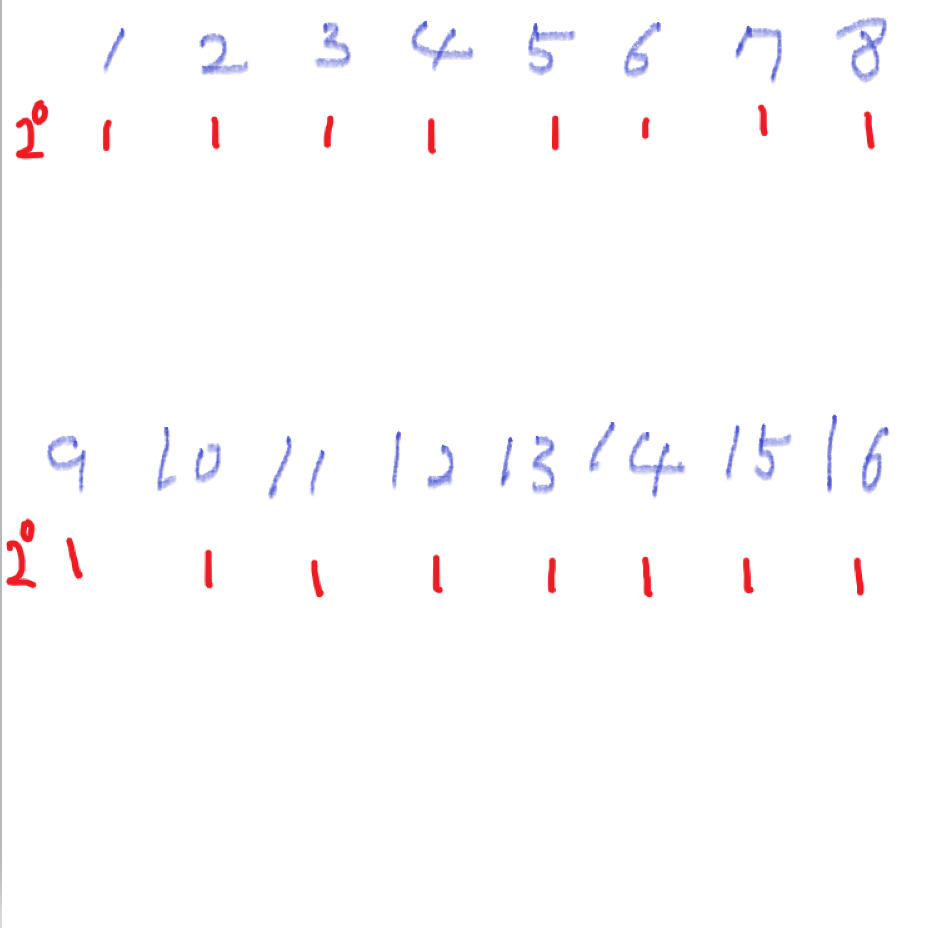 1 2 3 4 5 6 7 8
2⁰ 1 1 1 1 1 1 1 1
9 10 11 12 13 14 15 16
2⁰ 1 1 1 1 1 1 1 1